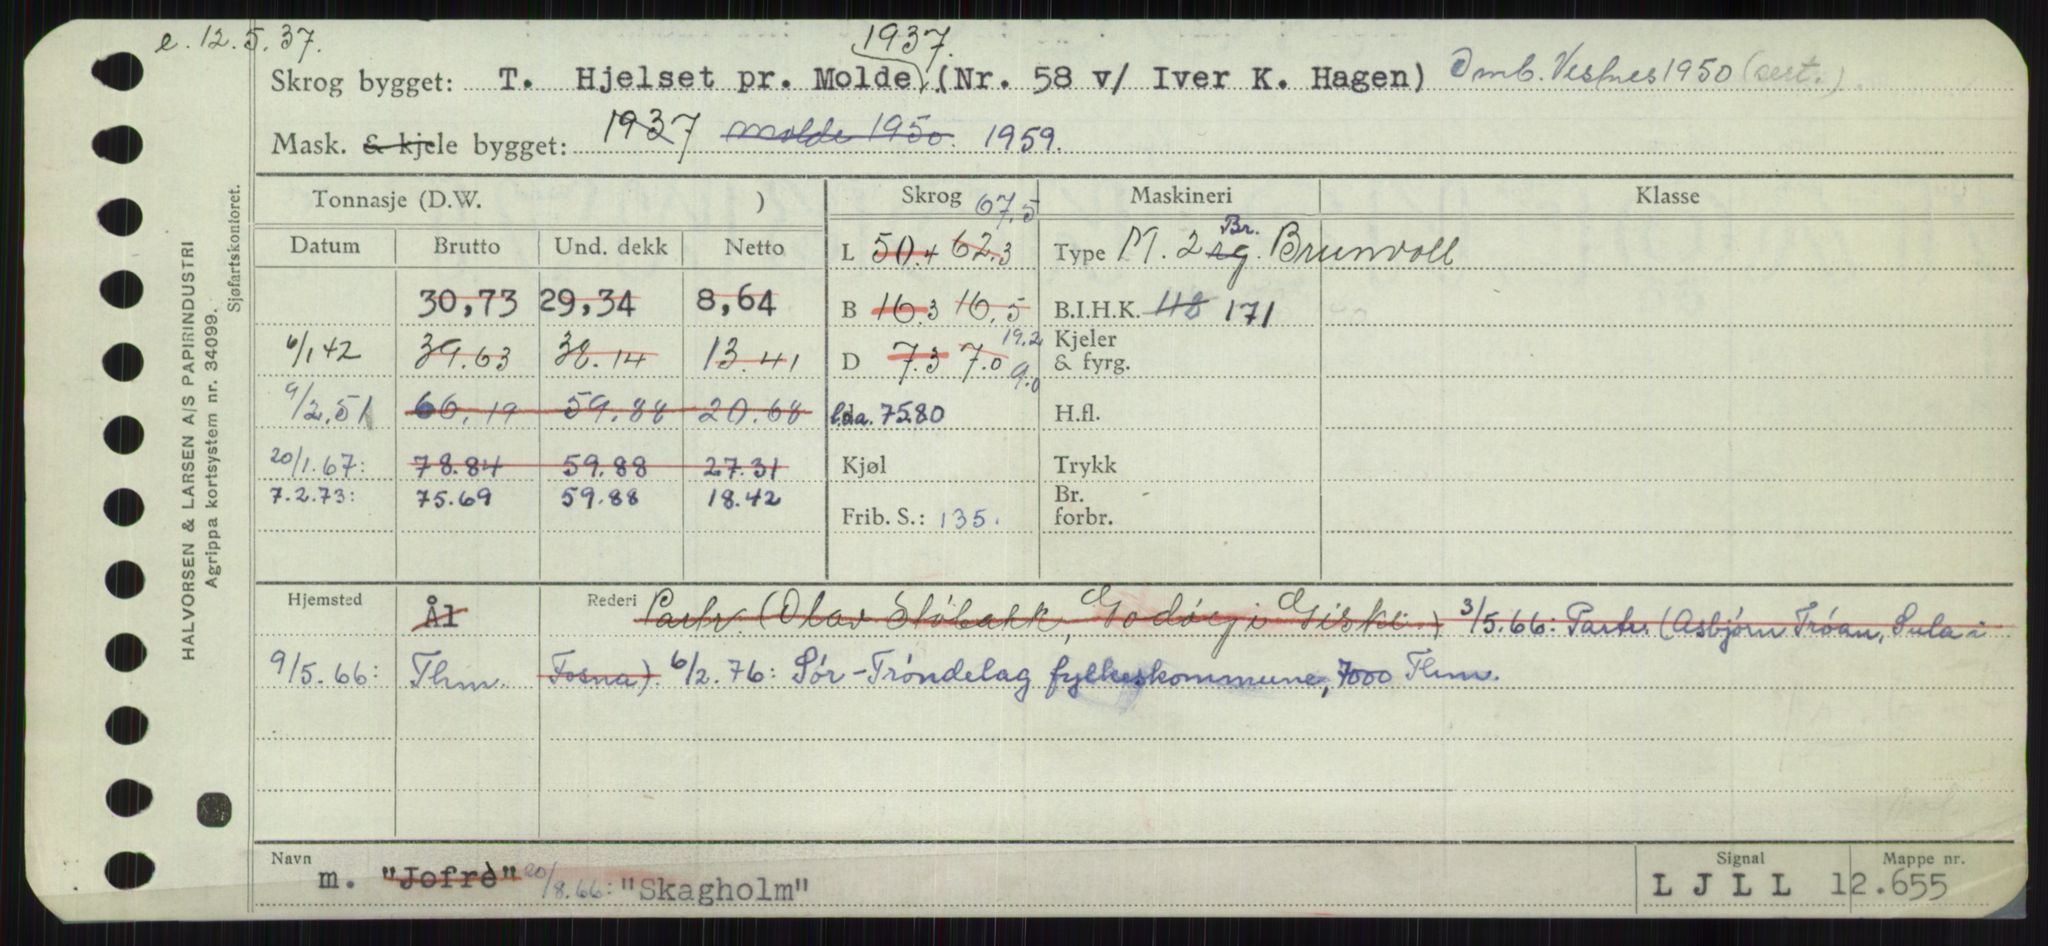 e. 12.5.37.
1937.
Skrog bygget: T. Hjelset pr. Molde (Nr. 58 v/ Iver K. Hagen) Omb. Vestnes 1950 (sert.)
Mask. & kjele bygget: 1937 Molde 1950. 1959.
Tonnasje (D.W. ) Skrog 67,5 Maskineri Klasse
Datum Brutto Und. dekk Netto L 50.4 62.3 Type M. 2 rg. Br. Brunvoll
30,73 29,34 8,64 B 16.3 16.5 B.I.H.K. 118 171
6/1 42 39.63 38.14 13.41 D 7.3 7.0 19.2 9.0 Kjeler & fyrg.
9/2.51 66,19 59.88 20.68 l.o.a. 75.80 H.fl.
20/1.67: 78.84 59.88 27.31 Kjøl Trykk
7.2.73: 75.69 59.88 18.42 Frib. S.: 135. Br. forbr.
Hjemsted Ål Rederi Partr. (Olav Støbakk, Godøy i Giske) 3/5.66: Partr. (Asbjørn Trøan, Sula i
9/5.66: Thm. Fosna). 6/2.76: Sør-Trøndelag fylkeskommune, 7000 Thm.
Navn Signal Mappe nr.
m. "Jofrè" 20/8.66: "Skagholm" LJLL 12.655
HALVORSEN & LARSEN A/S PAPIRINDUSTRI
Agrippa kortsystem nr. 34099.
Sjøfartskontoret.